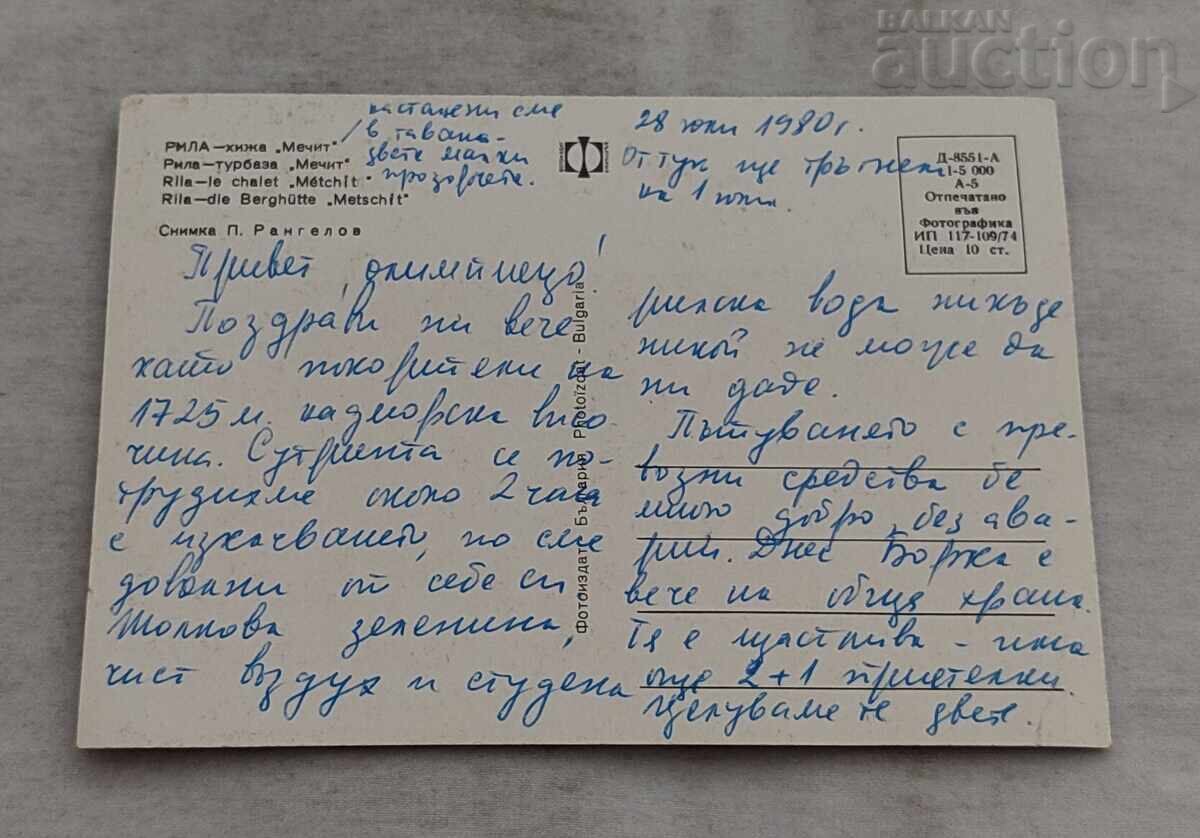 BALKAN
auction
настанени сме
в тавана -
двете малки
прозорчета.
28 юни 1980 г.
От тук ще тръгнем
на 1 юли.
РИЛА—хижа „Мечит"
Рила—турбаза „Мечит"
Rila—le chalet „Métchit"
Rila—die Berghütte „Metschit"
Снимка П. Рангелов
Д-8551-А
1-5 000
А-5
Отпечатано
във
Фотографика
ИП 117-109/74
Цена 10 ст.
Фотоиздат - България Photoizdat - Bulgaria
Привет, олимпиецо!
Поздрави ни вече
като покорители на
1725 м. надморска висо-
чина. Сутринта се по-
трудихме около 2 часа
с изкачването, но сме
доволни от себе си
Толкова зеленина,
чист въздух и студена
рилска вода никъде
никой не може да
ни даде.
Пътуването с пре-
возни средства бе
много добро, без ава-
рии. Днес Борка е
вече на обща храна.
Тя е щастлива - има
още 2+1 приятелки.
Целуваме те двете.